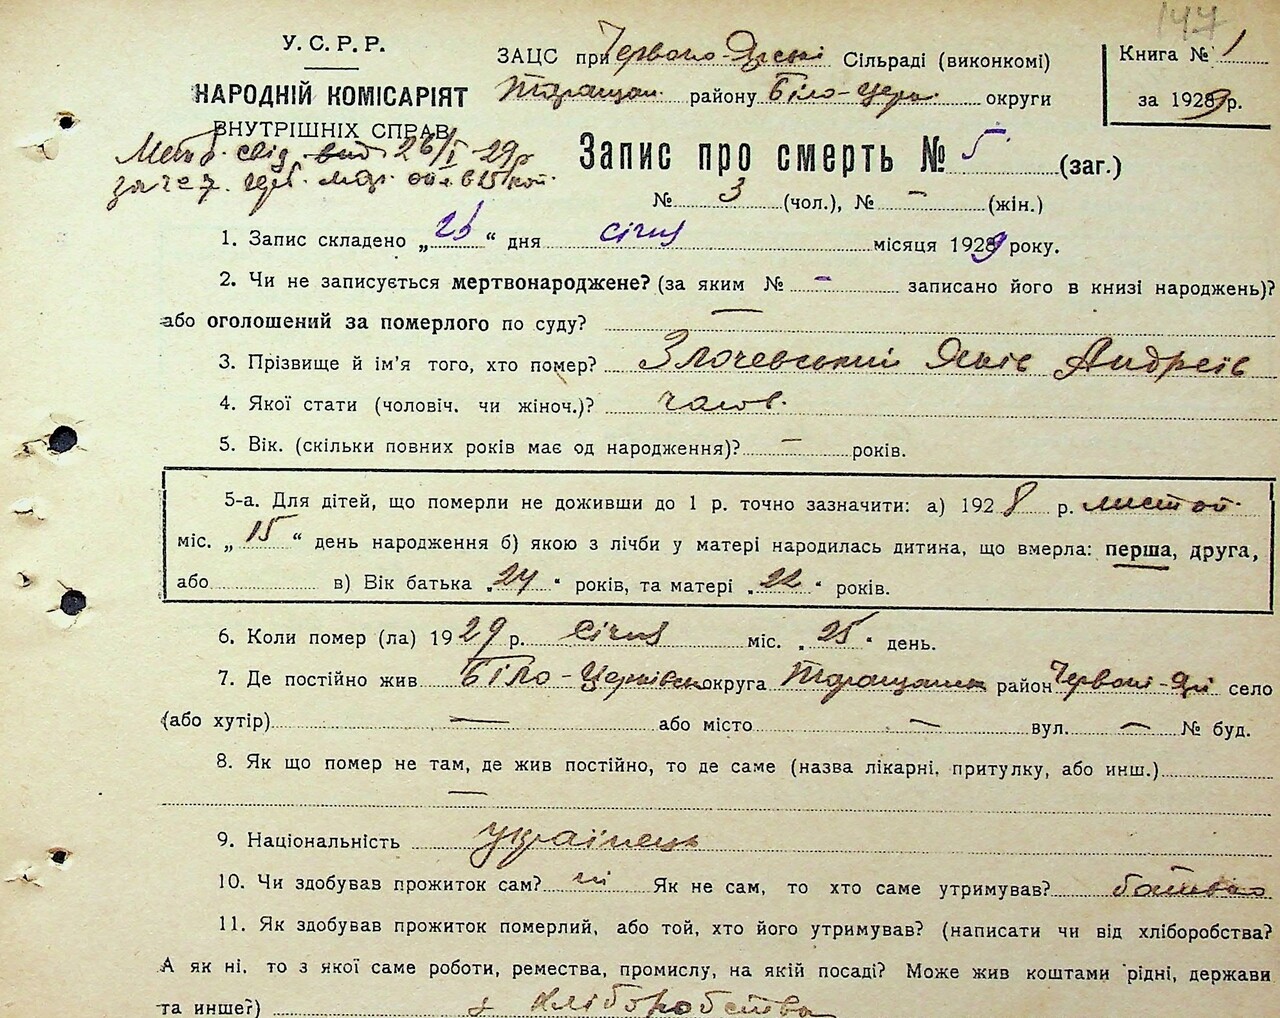 147
У. С. Р. Р.
НАРОДНІЙ КОМІСАРІЯТ
ВНУТРІШНІХ СПРАВ
ЗАЦС при Червоно-Ярські Сільраді (виконкомі)
Таращан. району Біло-Церк. округи
Книга № 1
за 1929 р.
26/I 29р
Запис про смерть № 5 (заг.)
№ 3 (чол.), № – (жін.)
1. Запис складено „26“ дня січня місяця 1929 року.
2. Чи не записується мертвонароджене? (за яким № – записано його в книзі народжень)?
або оголошений за померлого по суду? —
3. Прізвище й ім'я того, хто помер? Злочевський Яків Андреїв
4. Якої стати (чоловіч. чи жіноч.)? чолов.
5. Вік. (скільки повних років має од народження)? – років.
5-а. Для дітей, що померли не доживши до 1 р. точно зазначити: а) 1928 р. листоп.
міс. „15“ день народження б) якою з лічби у матері народилась дитина, що вмерла: перша, друга,
або в) Вік батька „24“ років, та матері „22“ років.
6. Коли помер (ла) 1929 р. січня міс. „25“ день.
7. Де постійно жив Біло-Церківськ округа Таращанськ район Червоні-Ярі село
(або хутір) — або місто — вул. — № буд.
8. Як що помер не там, де жив постійно, то де саме (назва лікарні, притулку, або инш.)
—
9. Національність українець
10. Чи здобував прожиток сам? ні Як не сам, то хто саме утримував? батько
11. Як здобував прожиток померлий, або той, хто його утримував? (написати чи від хліборобства?
А як ні, то з якої саме роботи, ремества, промислу, на якій посаді? Може жив коштами рідні, держави
та инше?) з хліборобства